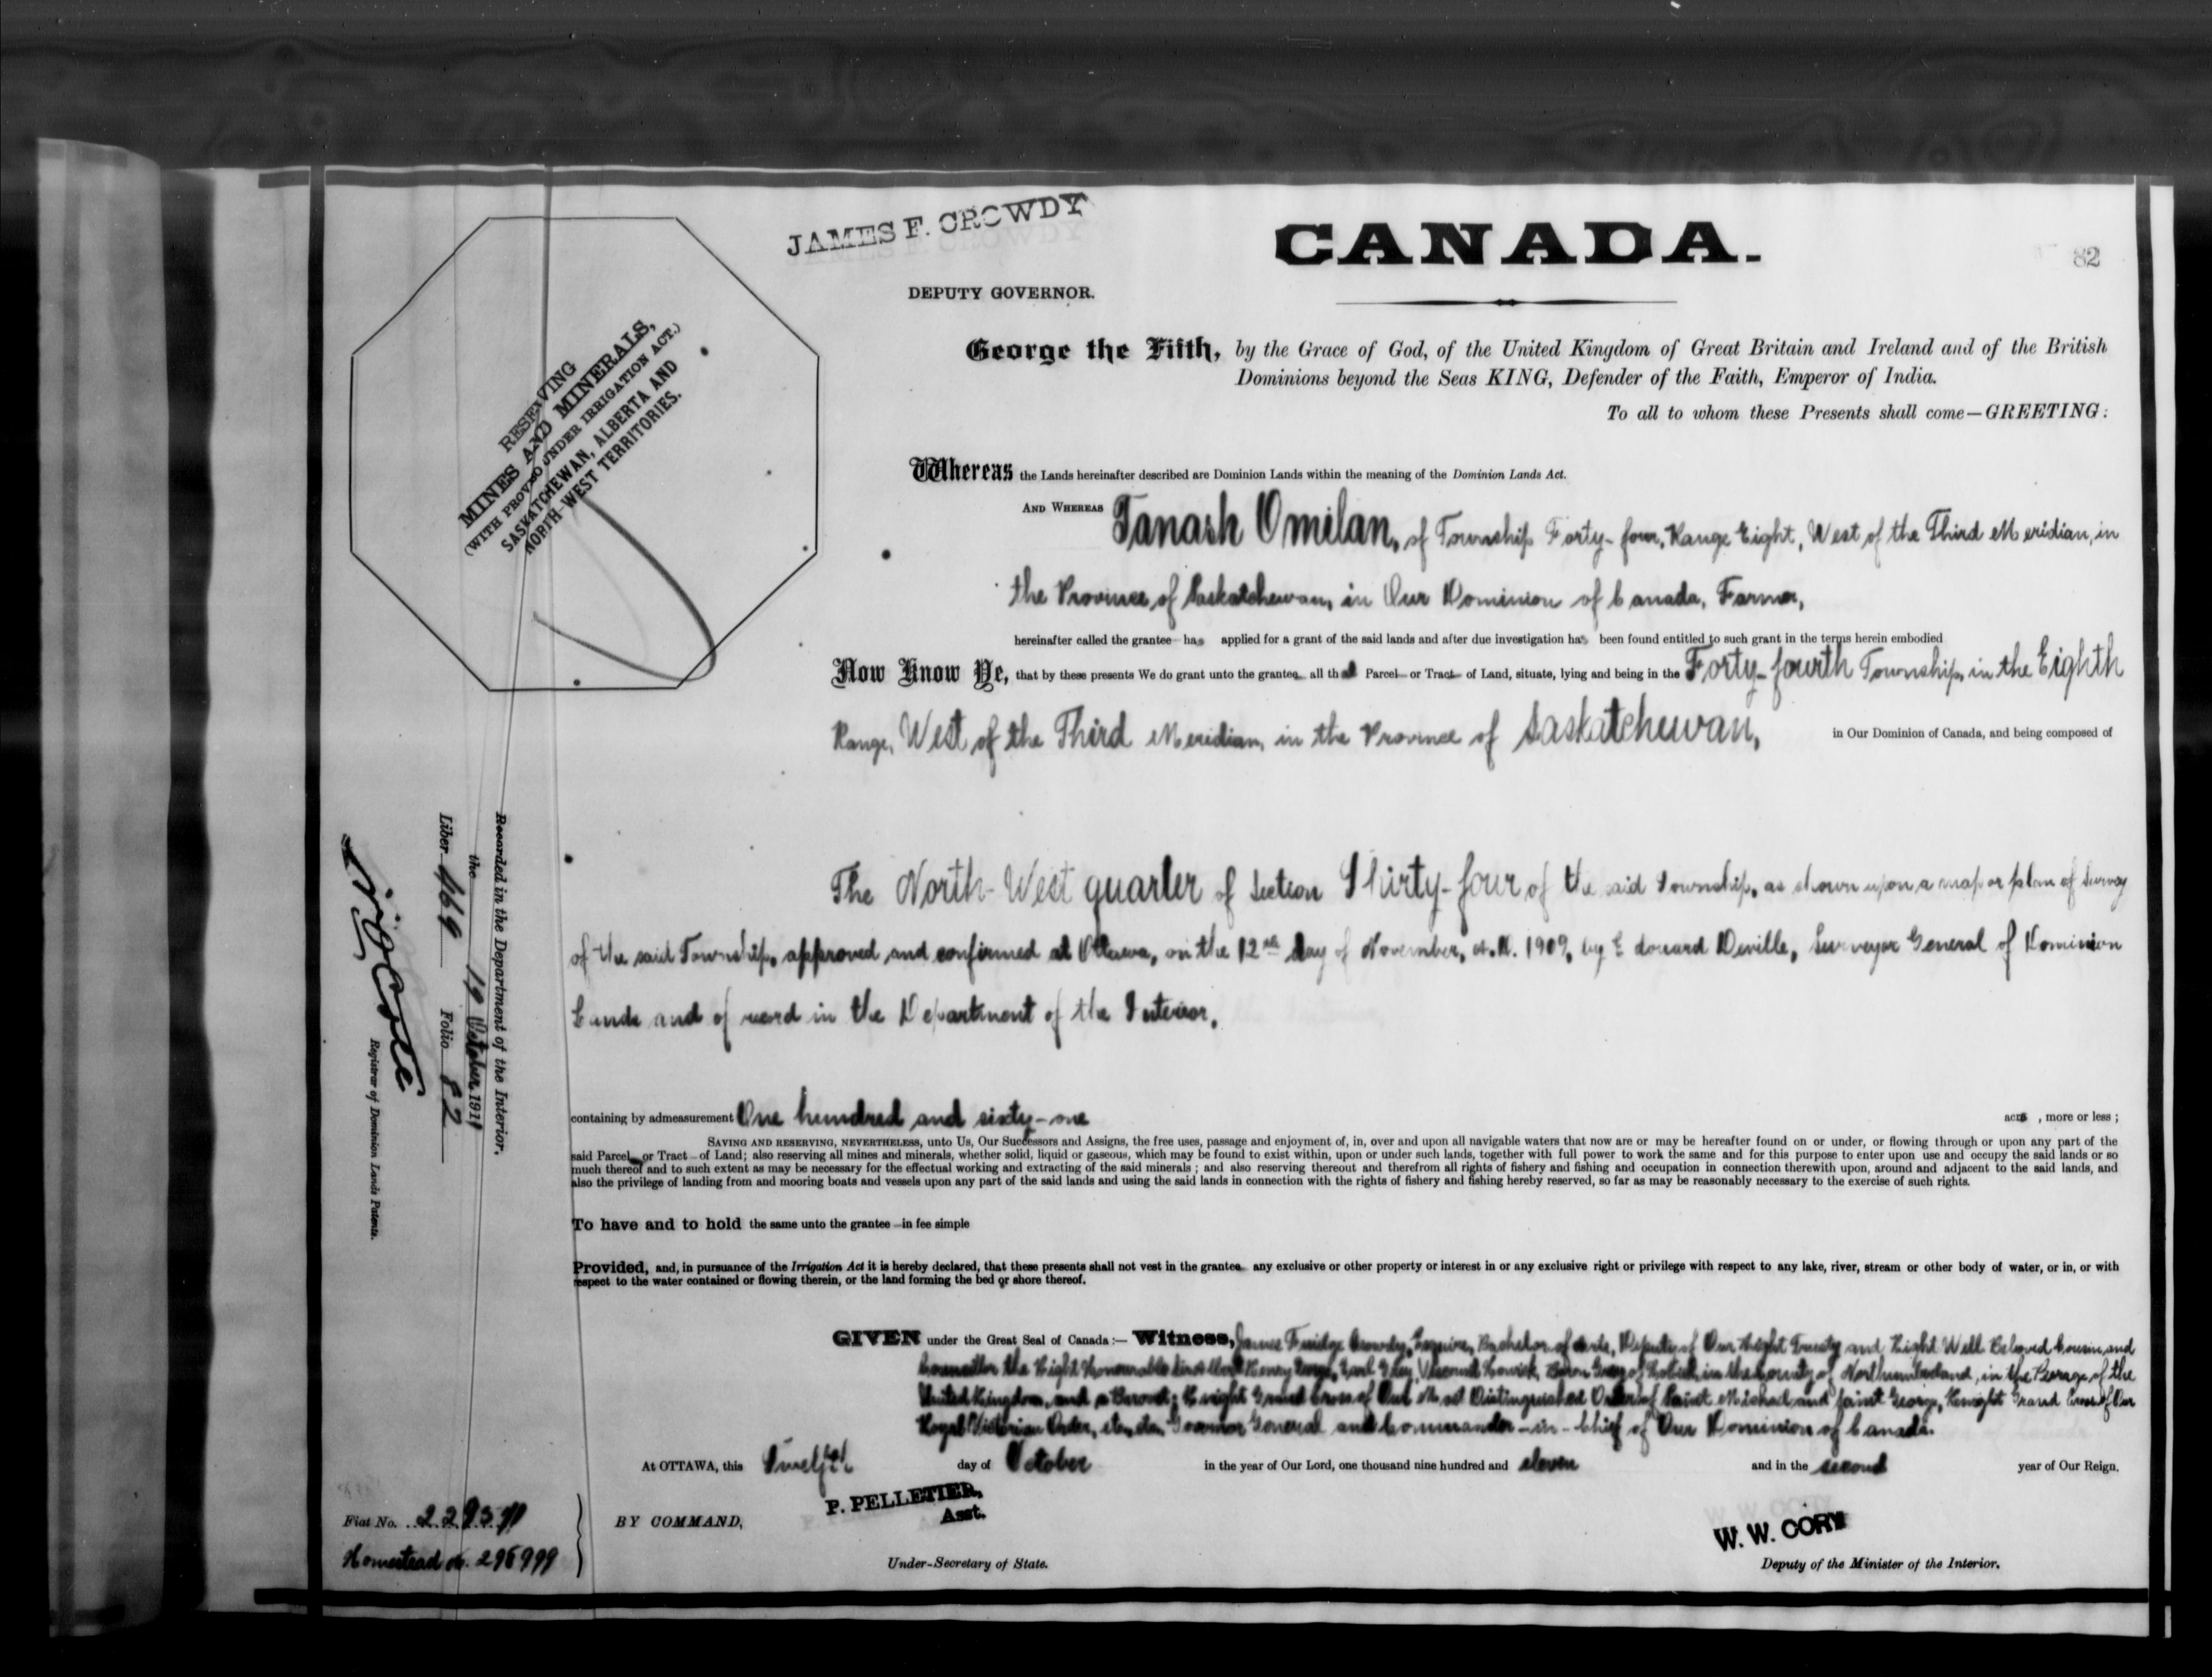 JAMES F. CROWDY
CANADA.
82
DEPUTY GOVERNOR.
RESERVING
MINES AND MINERALS,
(WITH PROVISO UNDER IRRIGATION ACT.)
SASKATCHEWAN, ALBERTA AND
NORTH-WEST TERRITORIES.
George the Fifth, by the Grace of God, of the United Kingdom of Great Britain and Ireland and of the British
Dominions beyond the Seas KING, Defender of the Faith, Emperor of India.
To all to whom these Presents shall come—GREETING:
Whereas the Lands hereinafter described are Dominion Lands within the meaning of the Dominion Lands Act.
AND WHEREAS Tanash Omilan, of Township Forty-four, Range Eight, West of the Third Meridian, in
the Province of Saskatchewan, in Our Dominion of Canada, Farmer,
hereinafter called the grantee has applied for a grant of the said lands and after due investigation has been found entitled to such grant in the terms herein embodied
Now Know Ye, that by these presents We do grant unto the grantee all that Parcel or Tract of Land, situate, lying and being in the Forty-fourth Township, in the Eighth
Range, West of the Third Meridian, in the Province of Saskatchewan, in Our Dominion of Canada, and being composed of
The North-West quarter of Section Thirty-four of the said Township, as shown upon a map or plan of Survey
of the said Township, approved and confirmed at Ottawa, on the 12th day of November, A.D. 1909, by Edouard Deville, Surveyor General of Dominion
Lands and of record in the Department of the Interior,
containing by admeasurement One hundred and sixty-one acres, more or less;
SAVING AND RESERVING, NEVERTHELESS, unto Us, Our Successors and Assigns, the free uses, passage and enjoyment of, in, over and upon all navigable waters that now are or may be hereafter found on or under, or flowing through or upon any part of the
said Parcel or Tract of Land; also reserving all mines and minerals, whether solid, liquid or gaseous, which may be found to exist within, upon or under such lands, together with full power to work the same and for this purpose to enter upon use and occupy the said lands or so
much thereof and to such extent as may be necessary for the effectual working and extracting of the said minerals; and also reserving thereout and therefrom all rights of fishery and fishing and occupation in connection therewith upon, around and adjacent to the said lands, and
also the privilege of landing from and mooring boats and vessels upon any part of the said lands and using the said lands in connection with the rights of fishery and fishing hereby reserved, so far as may be reasonably necessary to the exercise of such rights.
To have and to hold the same unto the grantee in fee simple
Provided, and, in pursuance of the Irrigation Act it is hereby declared, that these presents shall not vest in the grantee any exclusive or other property or interest in or any exclusive right or privilege with respect to any lake, river, stream or other body of water, or in, or with
respect to the water contained or flowing therein, or the land forming the bed or shore thereof.
GIVEN under the Great Seal of Canada:— Witness, James Fuidge Crowdy, Esquire, Bachelor of Arts, Deputy of Our Right Trusty and Right Well Beloved Cousin and
Councillor the Right Honourable Sir Albert Henry George, Earl Grey, Viscount Howick, Baron Grey of Howick, in the County of Northumberland, in the Peerage of the
United Kingdom, and a Baronet; Knight Grand Cross of Our Most Distinguished Order of Saint Michael and Saint George, Knight Grand Cross of Our
Royal Victorian Order, etc., etc., Governor General and Commander-in-Chief of Our Dominion of Canada.
At OTTAWA, this Twelfth day of October in the year of Our Lord, one thousand nine hundred and eleven and in the second year of Our Reign.
BY COMMAND,
P. PELLETIER,
Asst.
Under-Secretary of State.
W. W. CORY
Deputy of the Minister of the Interior.
Recorded in the Department of the Interior.
the 19 October 1911
Liber 469 Folio 82
Registrar of Dominion Lands Patents.
Fiat No.
Homestead